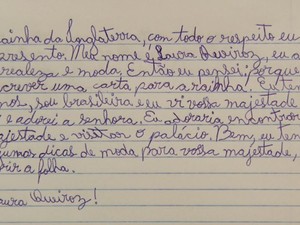 ainha da Inglaterra, com todo o respeito eu
aresento. Meu nome é Laura Queiroz, eu a
realeza e moda. Então eu pensei: porque
crever uma carta para a rainha. Eu ten
nos, sou brasileira e eu vi vossa majestade
e adorei a senhora. Eu adoraria encontrar
ajestade e visitar o palácio. Bem, eu ten
gumas dicas de moda para vossa majestade,
rir a folha.
aura Queiroz!